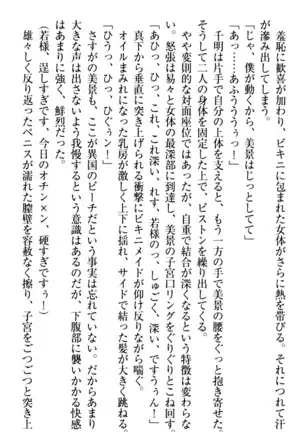 羞恥に歓喜が加わり、ビキニに包まれた女体がさらに熱を帯びる。それにつれて汗
が滲み出てしまう。
「じゃ、僕が動くから、美景はじっとしてて」
「あっ……あふううぅっ！」
千明は片手で自分の上体を支えると、もう一方の手で美景の腰をぐっと抱き寄せた。
そうして二人の身体を固定した上で、ピストンを繰り出してくる。
やや変則的な対面座位ではあったが、自重で結合が深くなるという特徴は変わらな
い。怒張は易々と女体の最深部に到達し、美景の子宮口リングをぐりぐりとこね回す。
「あひっ、ひっ、これ、これ深い、れす、若様のっ、しゅごく、深い、ですぅん！」
真下から垂直に突き上げられる衝撃にビキニメイドが仰け反りながら喘ぐ。
オイルまみれになった乳房が激しく上下に揺れ、サイドで結った髪が大きく跳ねる。
「ひうっ、ひっ、ひぐぅン！」
さすがの美景も、ここが異国のビーチだという事実は忘れていない。だからあまり
大きな声は出さないよう我慢するという意識はあるのだが、下腹部に襲いかかる快感
はあまりに強く、鮮烈だった。
（若様、すごいです、今日のオチンメン、硬すぎですぅー！）
雄々しく反り返ったペニスが濡れた膣壁を容赦なく擦り、子宮をごつごつと突き上